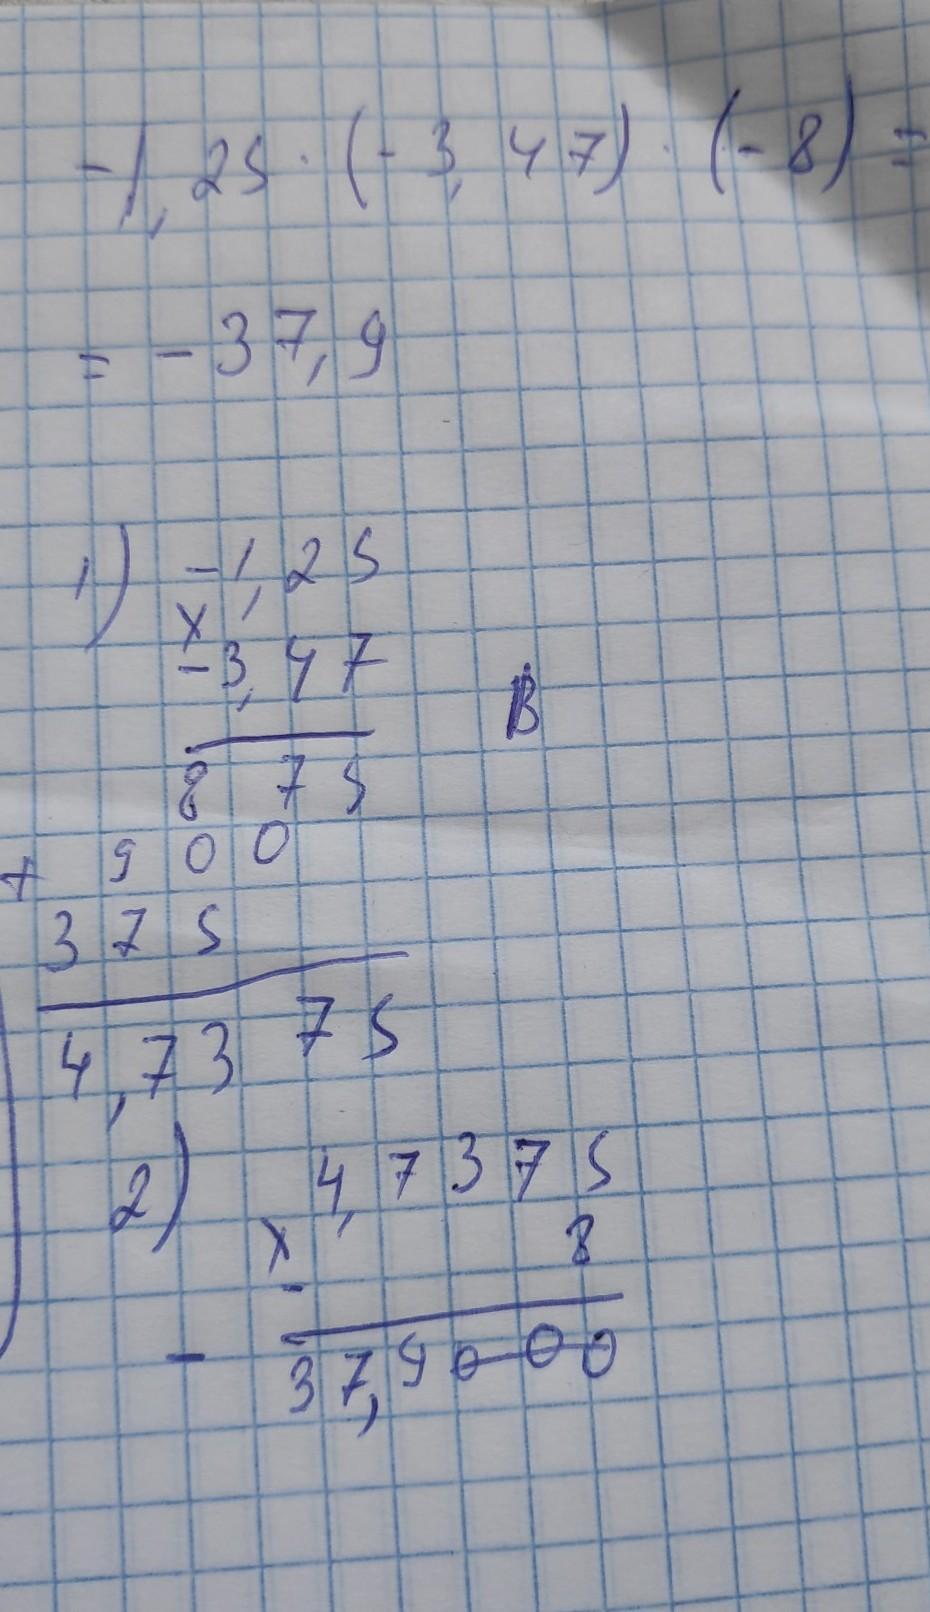 -1,25 · (-3,47) · (-8) =
= -37,9
1) -1,25
x
-3,47
B
875
+ 900
375
4,7375
2) 4,7375
x
- 8
- 37,9000